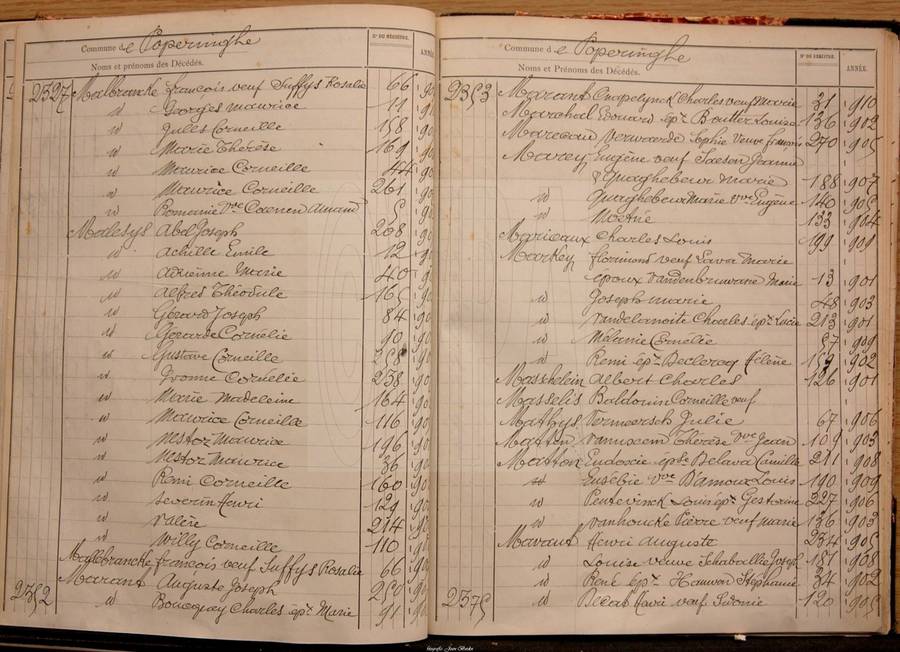 Commune de Poperinghe
Noms et prénoms des Décédés.
N° DU REGISTRE.
ANNÉE
2327 Malbrancke francois veuf Juffys Rosalie 66 90
id Georges Maurice 11 9
id Jules Corneille 158 90
id Marie Thérèse 169 90
id Maurice Corneille 44 90
id Maurice Corneille 261 90
id Romanie Vve Coenen Amand 5 90
Malesys Abel Joseph 208 90
id Achille Emile 12
id Adrienne Marie 40
id Alfred Théodule 165
id Gérard Joseph 84 90
id Gérarde Cornélie 90 90
id Gustave Corneille 90
id Yvonne Cornélie 238 90
id Marie Madeleine 164 90
id Maurice Corneille 116 90
id Nestor Maurice 196 90
id Nestor Maurice 36 90
id Remi Corneille 160 90
id Severin Henri 129 90
id Valère 214
id Willy Corneille 110 90
Mallebrancke francois veuf Juffys Rosalie 66 90
Marant Auguste Joseph 250 90
2352 id Boucquey Charles epx Marie 91 90
Commune de Poperinghe
Noms et Prénoms des Décédés.
N° DU REGISTRE.
ANNÉE.
2353 Marant Charles veuf Marie 31 910
Marechal Edouard epx Boutter Louise 136 902
Sophie Veuve francois 270 905
Marey Eugène veuf Jeanne
& Quaghebeur Marie 188 907
id Quaghebeur Marie Vve Eugène 140 905
id 133 904
Marieaux Charles Louis 199 901
Markey florimond veuf Marie
époux Vandenbruwane Marie 13 901
id Joseph Marie 48 903
id Vandelanoite Charles epx Lucie 213 901
id Mélanie Cornélie 57 909
id Remi epx Declercq Hélène 159 902
Masschelein Albert Charles 126 901
Masselis Baldouin Corneille veuf
Mathys Vermeersch Julie 67 906
Matton Thérèse Vve Jean 109 903
Matton Eudoxie épse Delava Camille 211 908
id Eusébie Vve D'amour Louis 190 909
id Pentevinck Louis epx 327 906
id Vanhoucke Pierre veuf Marie 136 903
Mavaut Henri Auguste 234 905
id Louise veuve Schabaillie Joseph 181 908
id René epx Stephanie 34 902
2375 id veuf Sidonie 120 905